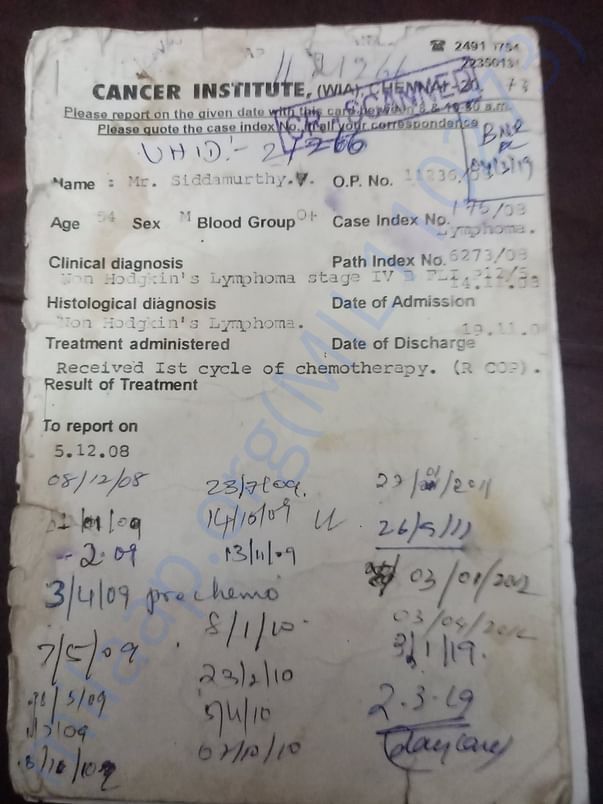 ☎ 2491 0754
22350131
CANCER INSTITUTE, (WIA), CHENNAI-20.
Please report on the given date with this card between 8 & 10.30 a.m.
Please quote the case index No. in all your correspondence
SCANNED
UHID:- 21266
BNR
Name : Mr. Siddamurthy.V. O.P. No. 11236/
Age 54 Sex M Blood Group O+ Case Index No. 175/08
Lymphoma.
Clinical diagnosis Path Index No. 6273/08
Non Hodgkin's Lymphoma stage IV B
14.11.08
Histological diagnosis Date of Admission
Non Hodgkin's Lymphoma. 19.11.0
Treatment administered Date of Discharge
Received Ist cycle of chemotherapy. (R COP).
Result of Treatment
To report on
5.12.08
08/12/08
/09
2.09
3/4/09 prechemo
7/5/09
/5/09
/09
23/7/09.
14/10/09
13/11/09
8/1/10
23/2/10
5/4/10
07/10/10
/2011
26/9/11
03/01/2012
03/04/2012
3/1/19.
2.3.19
(daycare)
milaap.org(MIL110273)